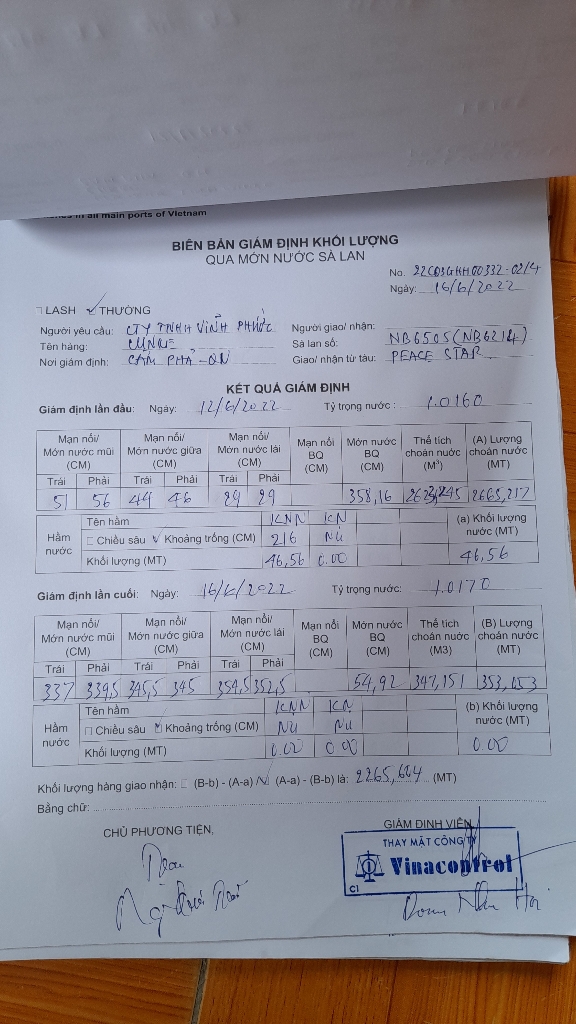 in all main ports of Vietnam
BIÊN BẢN GIÁM ĐỊNH KHỐI LƯỢNG
QUA MỚN NƯỚC SÀ LAN
No. 22G03GHH00332-02/4
Ngày: 16/6/2022
LASH THƯỜNG
Người yêu cầu: CTY TNHH VĨNH PHƯỚC Người giao/ nhận:
Tên hàng: Sà lan số: NB6505(NB6214)
Nơi giám định: CẨM PHẢ-QN Giao/ nhận từ tàu: PEACE STAR
KẾT QUẢ GIÁM ĐỊNH
Giám định lần đầu: Ngày: 12/6/2022 Tỷ trọng nước: 1.0160
Mạn nổi/ Mớn nước mũi (CM) Mạn nổi/ Mớn nước giữa (CM) Mạn nổi/ Mớn nước lái (CM) Mạn nổi BQ (CM) Mớn nước BQ (CM) Thể tích choán nước (M³) (A) Lượng choán nước (MT)
Trái Phải Trái Phải Trái Phải
51 56 44 46 29 29 358,16 2665,217
Hầm nước Tên hầm KNN KN (a) Khối lượng nước (MT)
Chiều sâu Khoảng trống (CM) 216 Nil
Khối lượng (MT) 46,56 0.00 46,56
Giám định lần cuối: Ngày: 16/6/2022 Tỷ trọng nước: 1.0170
Mạn nổi/ Mớn nước mũi (CM) Mạn nổi/ Mớn nước giữa (CM) Mạn nổi/ Mớn nước lái (CM) Mạn nổi BQ (CM) Mớn nước BQ (CM) Thể tích choán nước (M3) (B) Lượng choán nước (MT)
Trái Phải Trái Phải Trái Phải
337 339,5 345,5 345 354,5 352,5 54,92 347,151 353,053
Hầm nước Tên hầm KNN KN (b) Khối lượng nước (MT)
Chiều sâu Khoảng trống (CM) Nil Nil
Khối lượng (MT) 0.00 0.00 0.00
Khối lượng hàng giao nhận: (B-b) - (A-a) (A-a) - (B-b) là: 2265,604 (MT)
Bằng chữ:
CHỦ PHƯƠNG TIỆN, GIÁM ĐỊNH VIÊN,
THAY MẶT CÔNG TY
Vinacontrol
CI